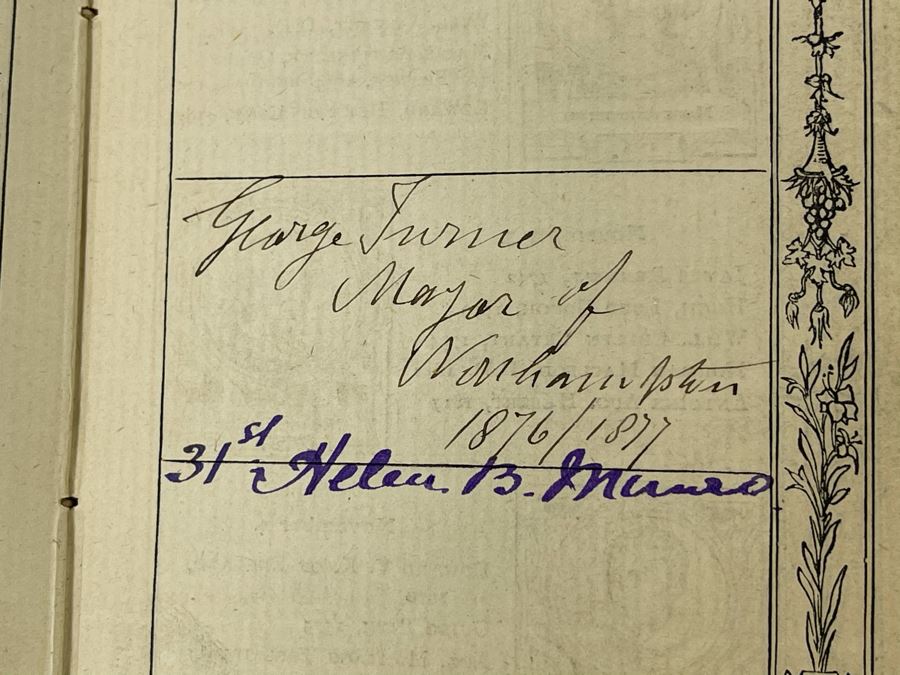 George Turner
Mayor of
Northampton
1876/1877
31st Helen B. Munro